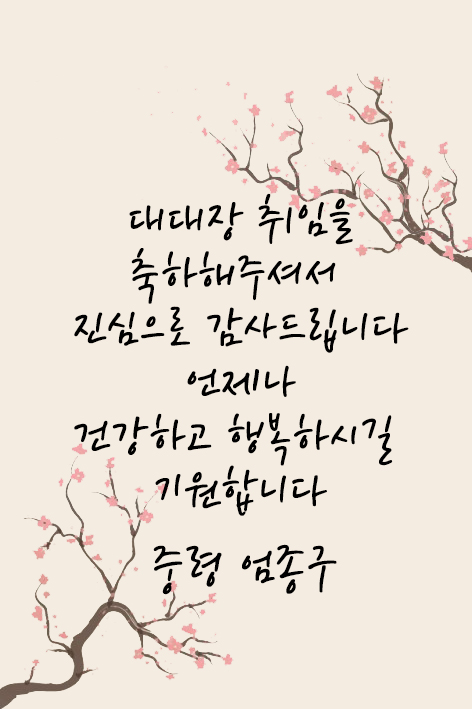 대대장 취임을
축하해주셔서
진심으로 감사드립니다
언제나
건강하고 행복하시길
기원합니다
중령 엄종구